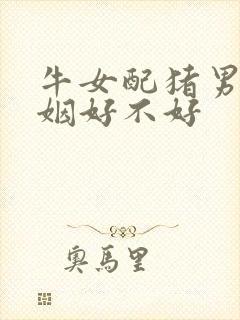 牛女配猪男
姻好不好
奥馬里